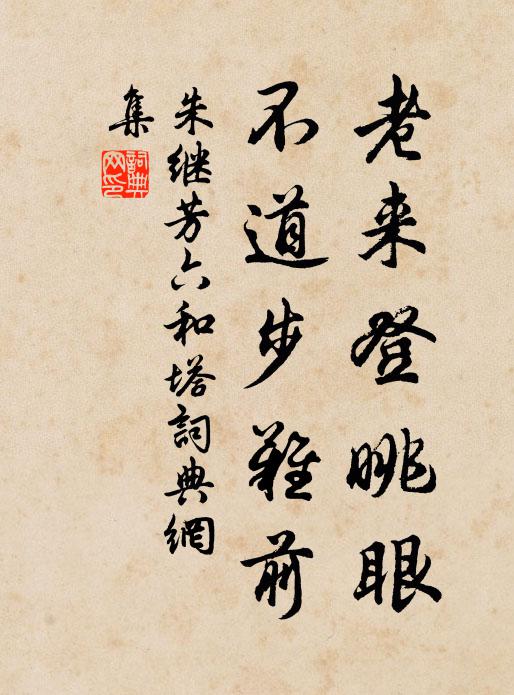 老来登眺眼
不道步难前
朱继芳六和塔詞典網
集
詞典
网印